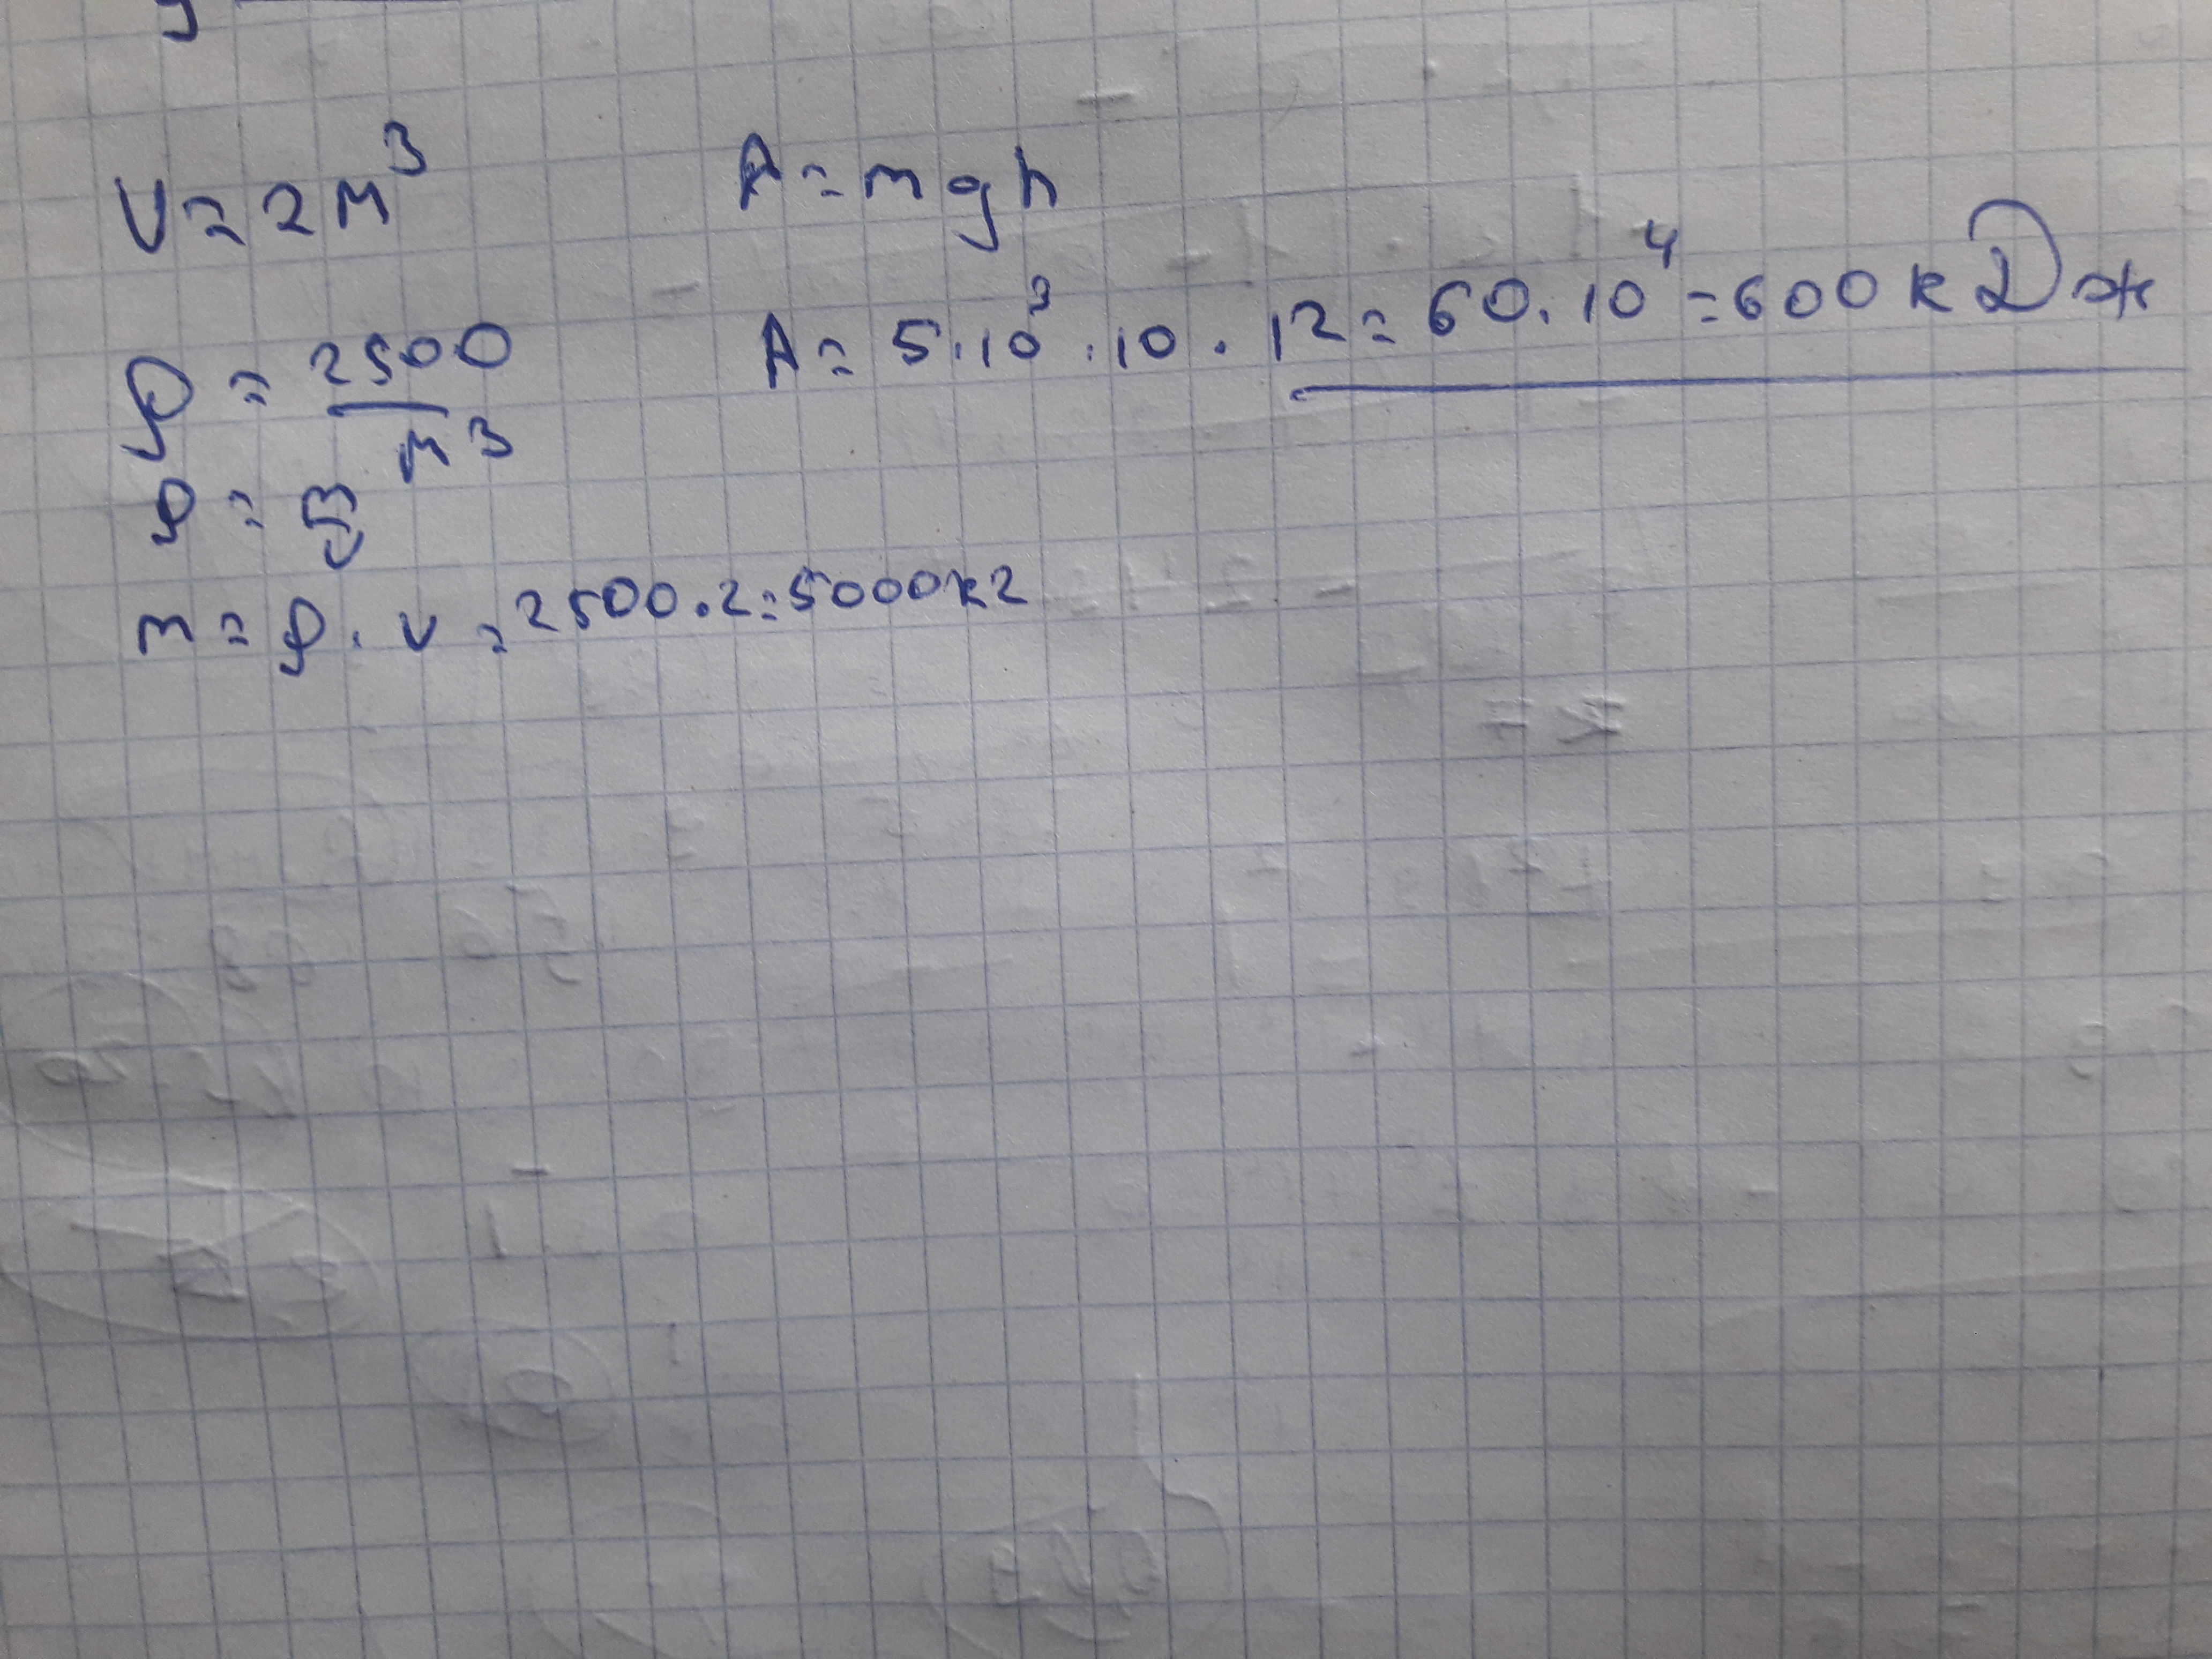 V = 2 м³
ρ = 2500 / м³
ρ = m / V
m = ρ · v = 2500 · 2 = 5000 кг
A = mgh
A = 5 · 10³ · 10 · 12 = 60 · 10⁴ = 600 кДж